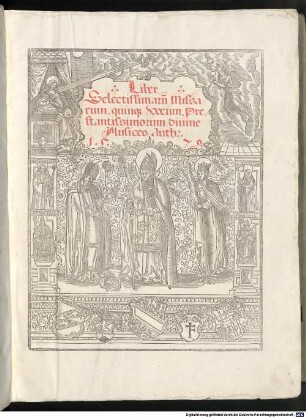 Liber
Selectissimarum Missa-
rum, quinque Vocum, Pre-
stantissimorum divine
Musices Auth:
1. 5. 7. 9.
Digitalisierung gefördert durch die Deutsche Forschungsgemeinschaft